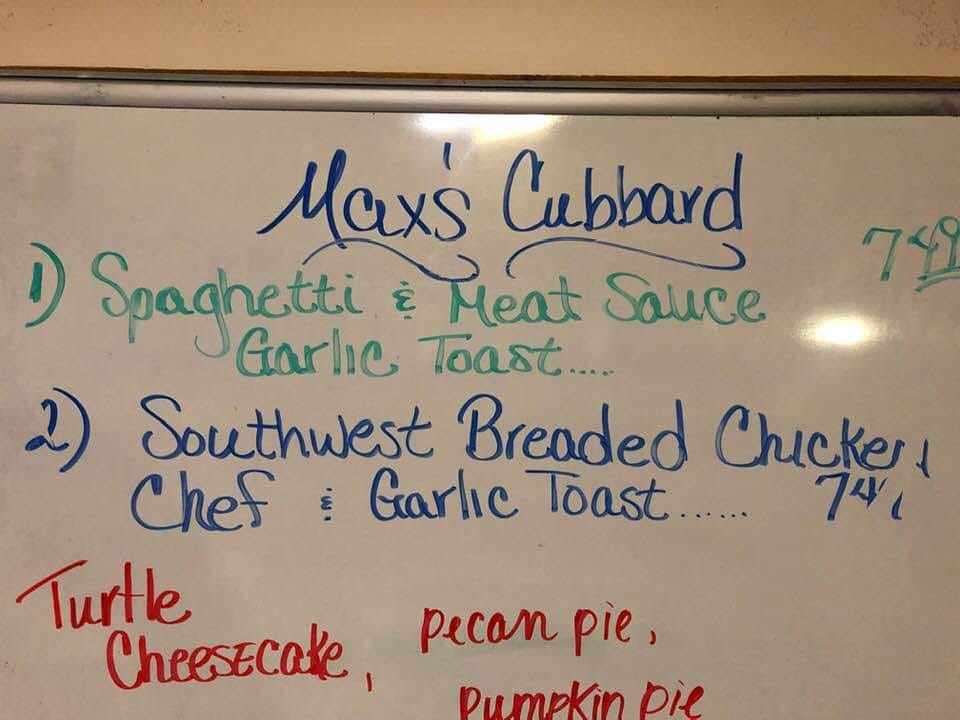 Max's Cubbard
1) Spaghetti & Meat Sauce 7 49
Garlic Toast.....
2) Southwest Breaded Chicken
Chef & Garlic Toast...... 7 4
Turtle
Cheesecake, pecan pie,
pumpkin pie